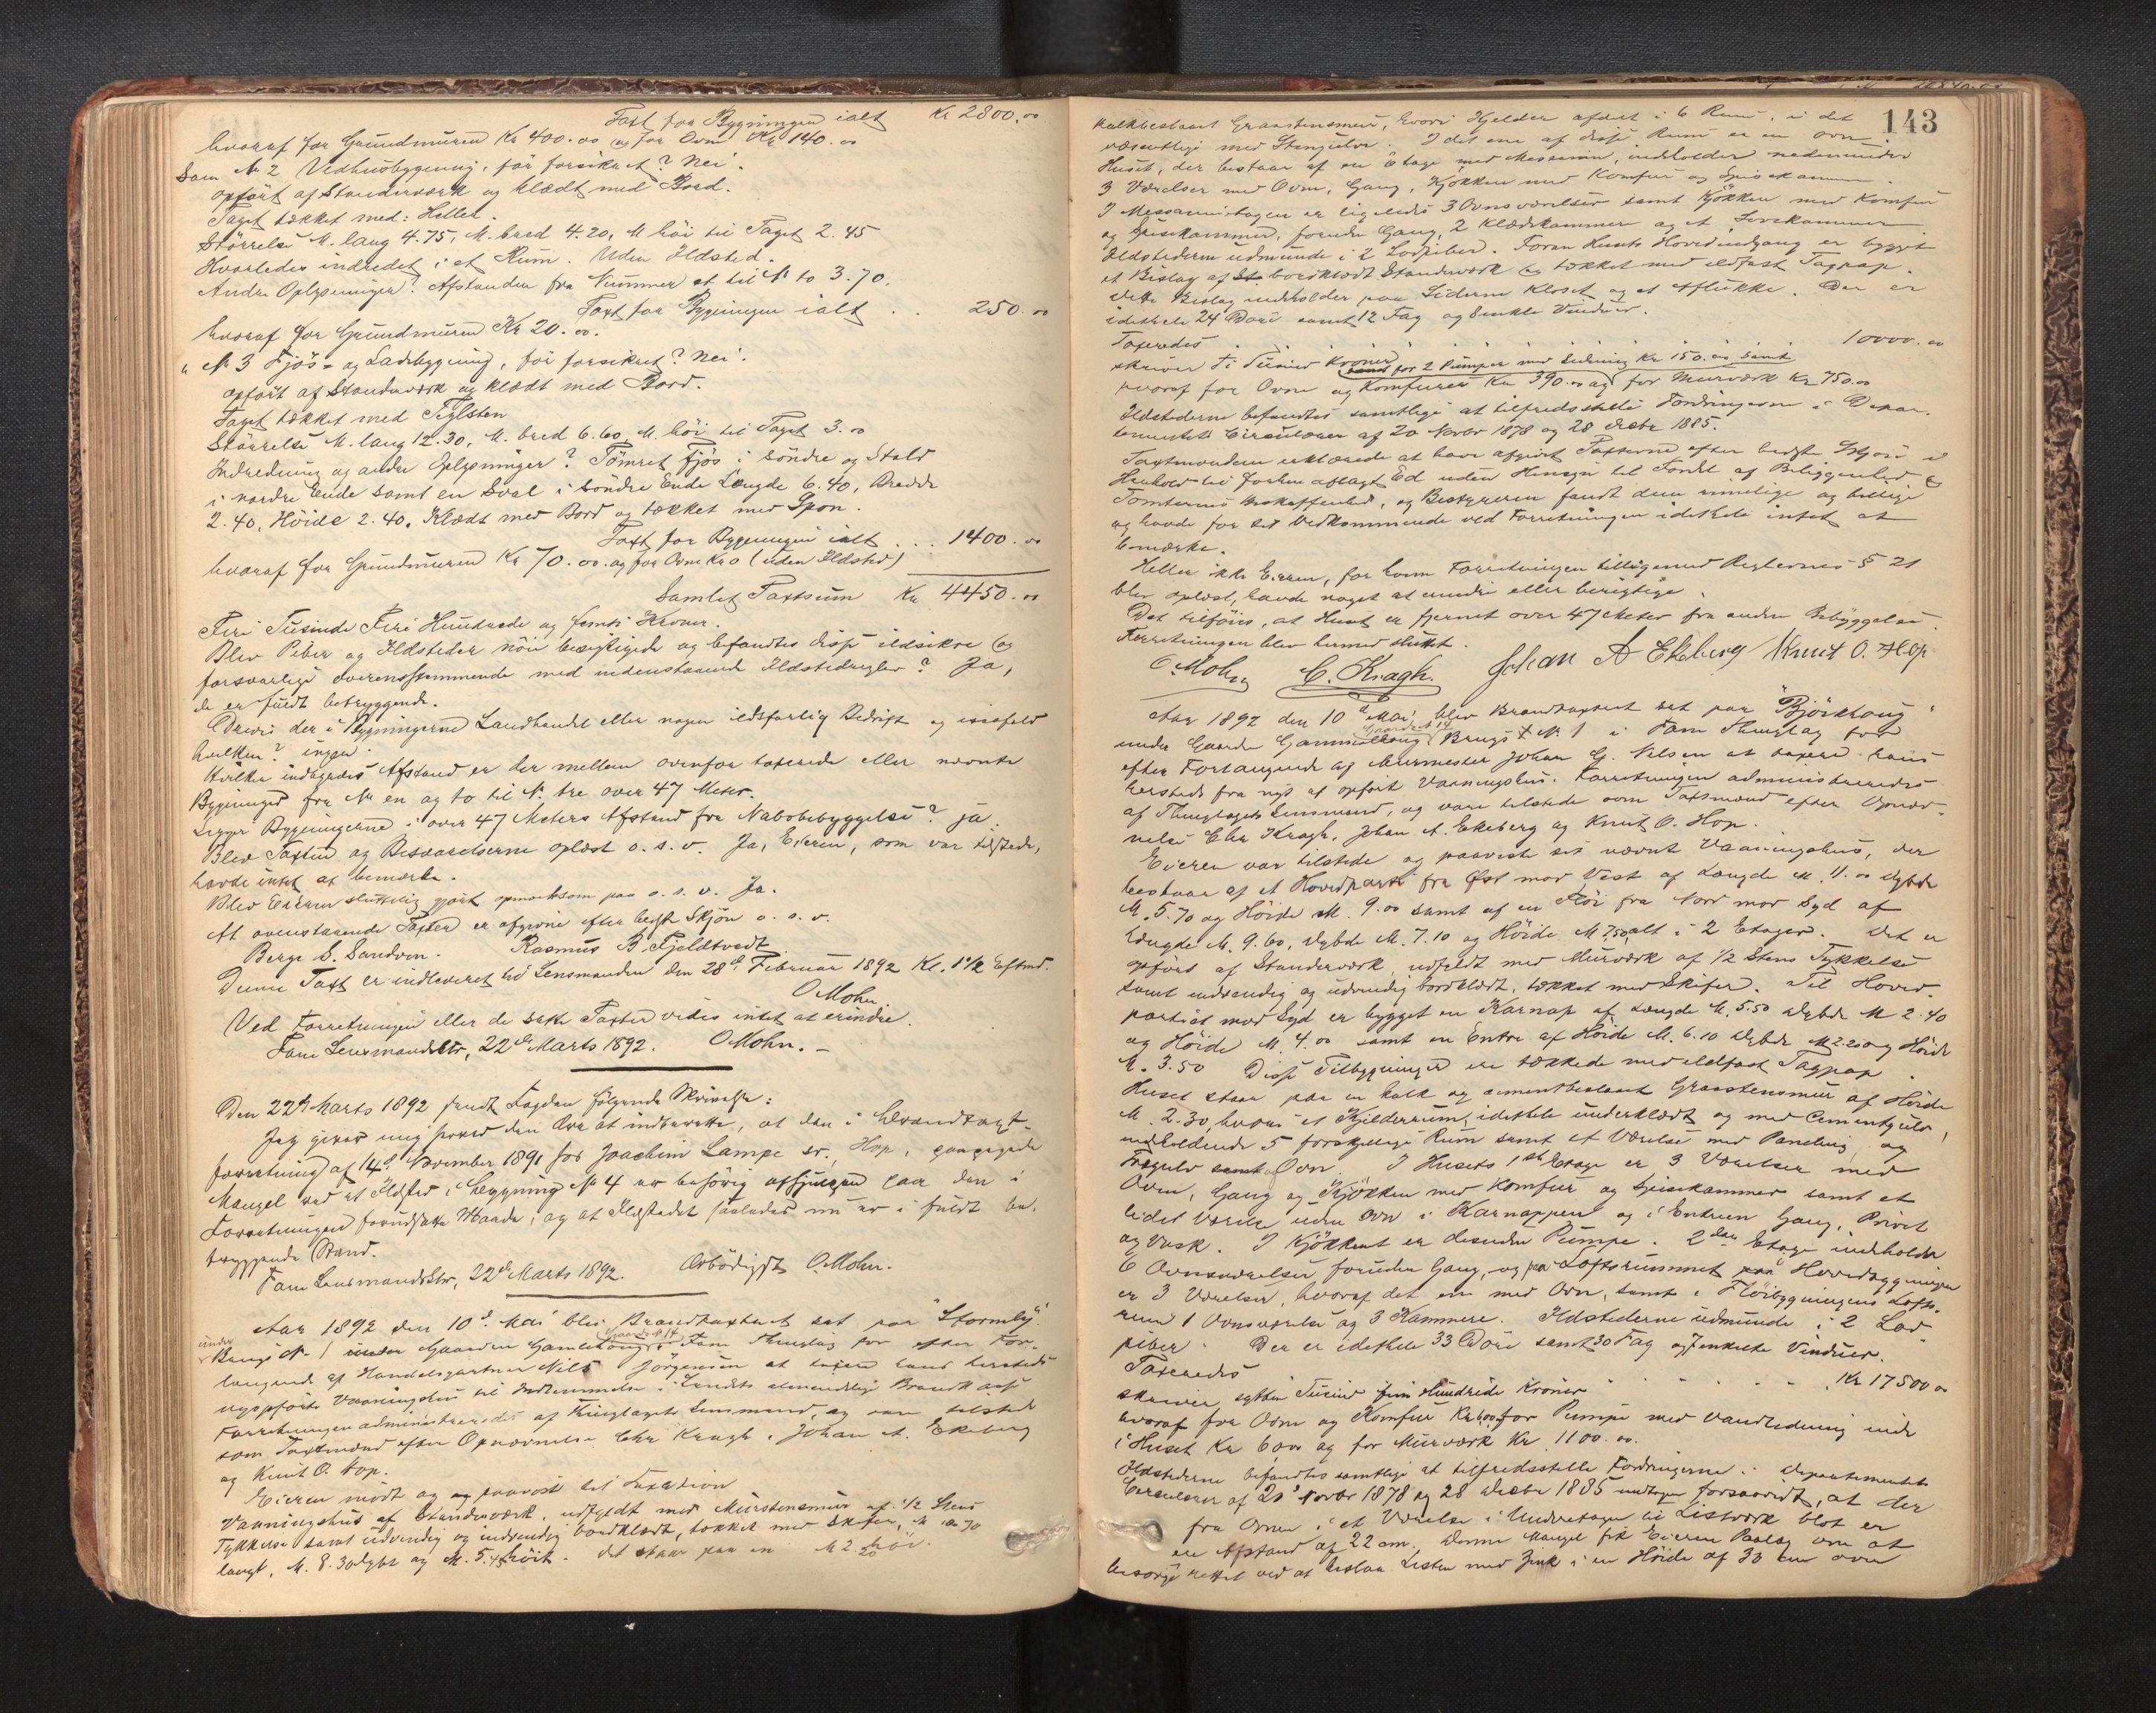 Taxt for Bygningen ialt Kr 2800.00
hvoraf for Grundmuren Kr 400.00 og for Ovn Kr 140.00
Som No 2 Vedhusbygning, før forsikret? Nei.
opført af Standerværk og klædt med Bord.
Taget tækket med: Heller.
Størrelse M. lang 4.75, M. bred 4.20, M høi til Taget 2.45
Hvorledes indredet i et Rum. Uden Ildsted.
Andre Oplysninger? Afstanden fra Nummer et til No to 3.70.
Taxt for Bygningen ialt . . 250.00
hvoraf for Grundmuren Kr 20.00.
" No 3 Fjøs- og Ladebygning, før forsikret? Nei.
opført af Standerværk og klædt med Bord.
Taget tækket med Teglsten
Størrelse M. lang 12.30, M. bred 6.60, M. høi til Taget 3.00
Indredning og andre Oplysninger? Tømret Fjøs i søndre og Stald
i nordre Ende samt en Sval i søndre Ende Længde 6.40, Bredde
2.40, Høide 2.40. Klædt med Bord og tækket med Spon.
Taxt for Bygningen ialt . . . 1400.00
hvoraf for Grundmuren Kr 70.00 og for Ovne Kr 0 (uden Ildsted)
Samlet Taxtsum Kr 4450.00
Fire Tusinde Fire Hundrede og femti Kroner.
Blev Piber og Ildsteder nøie besigtigede og befandtes disse ildsikre og
forsvarlige overensstemmende med indenstaaende Ildstedregler? Ja,
de er fuldt betryggende.
Drives der i Bygningerne Landhandel eller nogen ildsfarlig Bedrift og isaafald
hvilken? ingen.
Hvilke indbyrdes Afstand er der mellem ovenfor taxerede eller nævnte
Bygninger fra No en og to til No tre over 47 Meter.
Ligger Bygningerne i over 47 Meters Afstand fra Nabobebyggelse? ja.
Blev Taxten og Besvarelserne oplæst o. s. v. Ja, Eieren, som var tilstede,
havde intet at bemærke.
Blev Eieren sluttelig gjort opmærksom paa o. s. v. Ja.
At ovenstaaende Taxter er afgivne efter bedste Skjøn o. s. v.
Berge S. Sandven. Rasmus B. Fjeldtvedt.
Denne Taxt er indleveret til Lensmanden den 28de Februar 1892 Kl. 1½ Eftmd.
O Mohn.
Ved Forretningen eller de satte Taxter vides intet at erindre.
Fane Lensmandsktr, 22de Marts 1892. O Mohn.—
Den 22de Marts 1892 sendt Fogden følgende Skrivelse:
Jeg giver mig herved den Ære at indberette, at den i Brandtaxt-
forretning af 14de November 1891 hos Joachim Lampe sr., Hop, paapegede
Mangel ved et Ildsted i Bygning No 4 er behørig afhjulpen paa den i
Forretningen forudsatte Maade, og at Ildstedet saaledes nu er i fuldt be-
tryggende Stand.
Fane Lensmandsktr, 22de Marts 1892. Ærbødigst O. Mohn.
Aar 1892 den 10de Mai blev Brandtaxtret sat paa "Stormly"
under Brugs No 1 under Gaarden Gamlehaugs Gaards No 14 i Fane Thinglag for efter For-
langende af Handelsgartner Nils Jørgensen at taxere hans hersteds
nyopførte Vaaningshus til Indlemmelse i Landets almindelige Brandkasse
Forretningen administreredes af Thinglagets Lensmand, og var tilstede
som Taxtmænd efter Opnævnelse Chr Kragh, Johan A. Ekeberg
og Knut O. Hop.
Eieren mødt og og paaviste til Taxation
Vaaningshus af Standerværk, udfyldt med Murstensmur af ½ Stens
Tykkelse samt udvendig og indvendig bordklædt, tækket med Skifer, M 10.70
langt, M. 8.30 dybt og M. 5.45 høit. Det staar paa en M 2.20 høi.
143
kalkbestaset Graastensmur, hvori Kjelder afdelt i 6 Rum, i det
væsentlige med Stengulve. I det ene af disse Rum er en Ovn.
Huset, der bestaar af en Etage med Messanin, indeholder nedenunder
3 Værelser med Ovn, Gang, Kjøkken med Komfur og Spiskammer.
I Messaninetagen er ligeledes 3 Ovnsværelser samt Kjøkken med Komfur
og Spisekammer, foruden Gang, 2 Klædkammer og et Sovekammer
Ildstederne udmunde i 2 Lodpiber. Foran Husets Hovedindgang er bygget
et Bislag af St. bordklædt Standerværk og tækket med ildfast Tagpap.
Dette Bislag indeholder paa Siderne Kloset og et Aflukke. Der er
idethele 24 Døre samt 12 Fag og 8 enkle Vinduer.
Taxeredes . . . . . . . . 10000.00
skriver Ti Tusind Kroner
hvoraf for Ovne og Komfurer Kr 390.00 og samt for 2 Pumper med Ledning Kr 150.00 samt for Murværk Kr 750.00
Ildstederne befandtes samtlige at tilfredsstille Fordringerne i Depar-
tementets Circulærer af 20 Novbr 1878 og 28 Decbr 1885.
Taxtmændene erklærede at have afgivet Taxterne efter bedste Skjøn i
Henhold til forhen aflagt Ed uden Hensyn til Fordel af Beliggenhed og
Tomternes Beskaffenhed, og Bestyreren fandt dem rimelige og billige
og havde for sit Vedkommende ved Forretningen idethele intet at
bemærke.
Heller ikke Eieren, for hvem Forretningen tilligemed Reglernes § 21
blev oplæst, havde noget at erindre eller berigtige.
Det tilføies, at Huset er fjernet over 47 Meter fra anden Bebyggelse.
Forretningen blev hermed sluttet.
O Mohn C. Kragh. Johan A Ekeberg Knut O. Hop
Aar 1892 den 10de Mai blev Brandtaxtret sat paa "Bjørkhaug"
under Gaarden Gammelhaug Gaards No 14 Brugs No 1 i Fane Thinglag for
efter Forlangende af Murmester Johan G. Nilsen at taxere hans
hersteds fra nyt af opført Vaaningshus. Forretningen administreredes
af Thinglagets Lensmand, og vare tilstede som Taxtmænd efter Opnæv-
nelse Chr Kragh, Johan A. Ekeberg og Knut O. Hop.
Eieren var tilstede og paaviste sit nævnte Vaaningshus, der
bestaar af et Hovedparti fra Øst mod Vest af Længde M. 11.00 Dybde
M. 5.70 og Høide M. 9.00 samt af en Fløi fra Nord mod Syd af
Længde M. 9.60, Dybde M. 7.10 og Høide M 7.50, alt i 2 Etager. Det er
opført af Standerværk, udfyldt med Murværk af ½ Stens Tykkelse
samt indvendig og udvendig bordklædt, tækket med Skifer. Til Hoved-
partiet mod Syd er bygget en Karnap af Længde M. 5.50 Dybde M 2.40
og Høide M. 4.00 samt en Entre af Høide M. 6.10 Dybde M 2.20 og Høide
M. 3.50 Disse Tilbygninger ere tækkede med ildfast Tagpap.
Huset staar paa en kalk og cementbestaset Graastensmur af Høide
M. 2.30, hvori et Kjelderrum, idethele underklædt og med Cementgulv,
indeholdende 5 forskjellige Rum samt et Værelse med Paneling og
Trægulv samt Ovn. I Husets 1ste Etage er 3 Værelser med
Ovn, Gang og Kjøkken med Komfur og Spisekammer samt et
lidet Værelse uden Ovn i Karnappen og i Entreen Gang, Privet
og Vask. I Kjøkkenet er desuden Pumpe. 2den Etage indeholder
6 Ovnsværelser, foruden Gang, og paa Loftsrummet paa Hovedbygningen
er 3 Værelser, hvoraf det ene med Ovn, samt i Fløibygningens Lofts-
rum 1 Ovnsværelse og 3 Kammere. Ildstederne udmunde i 2 Lod-
piber. Der er idethele 33 Døre samt 30 Fag og 7 enkelte Vinduer.
Taxeredes . . . . . . Kr 17500.00
skriver sytten Tusind fem Hundrede Kroner
hvoraf for Ovne og Komfur Kr 600, for Pumpe med Vandledning inde
i Huset Kr 60.00 og for Murværk Kr 1100.00.
Ildstederne befandtes samtlige at tilfredsstille Fordringerne i Departementets
Circulærer af 20 Novbr 1878 og 28 Decbr 1885 undtagen forsaavidt, at der
fra Ovnen i et Værelse i Underetagen til Listværk blot er
en Afstand af 22 cm. Denne Mangel fik Eieren Paalæg om at
besørge rettet ved at beslaa Listen med Zink i en Høide af 30 cm over